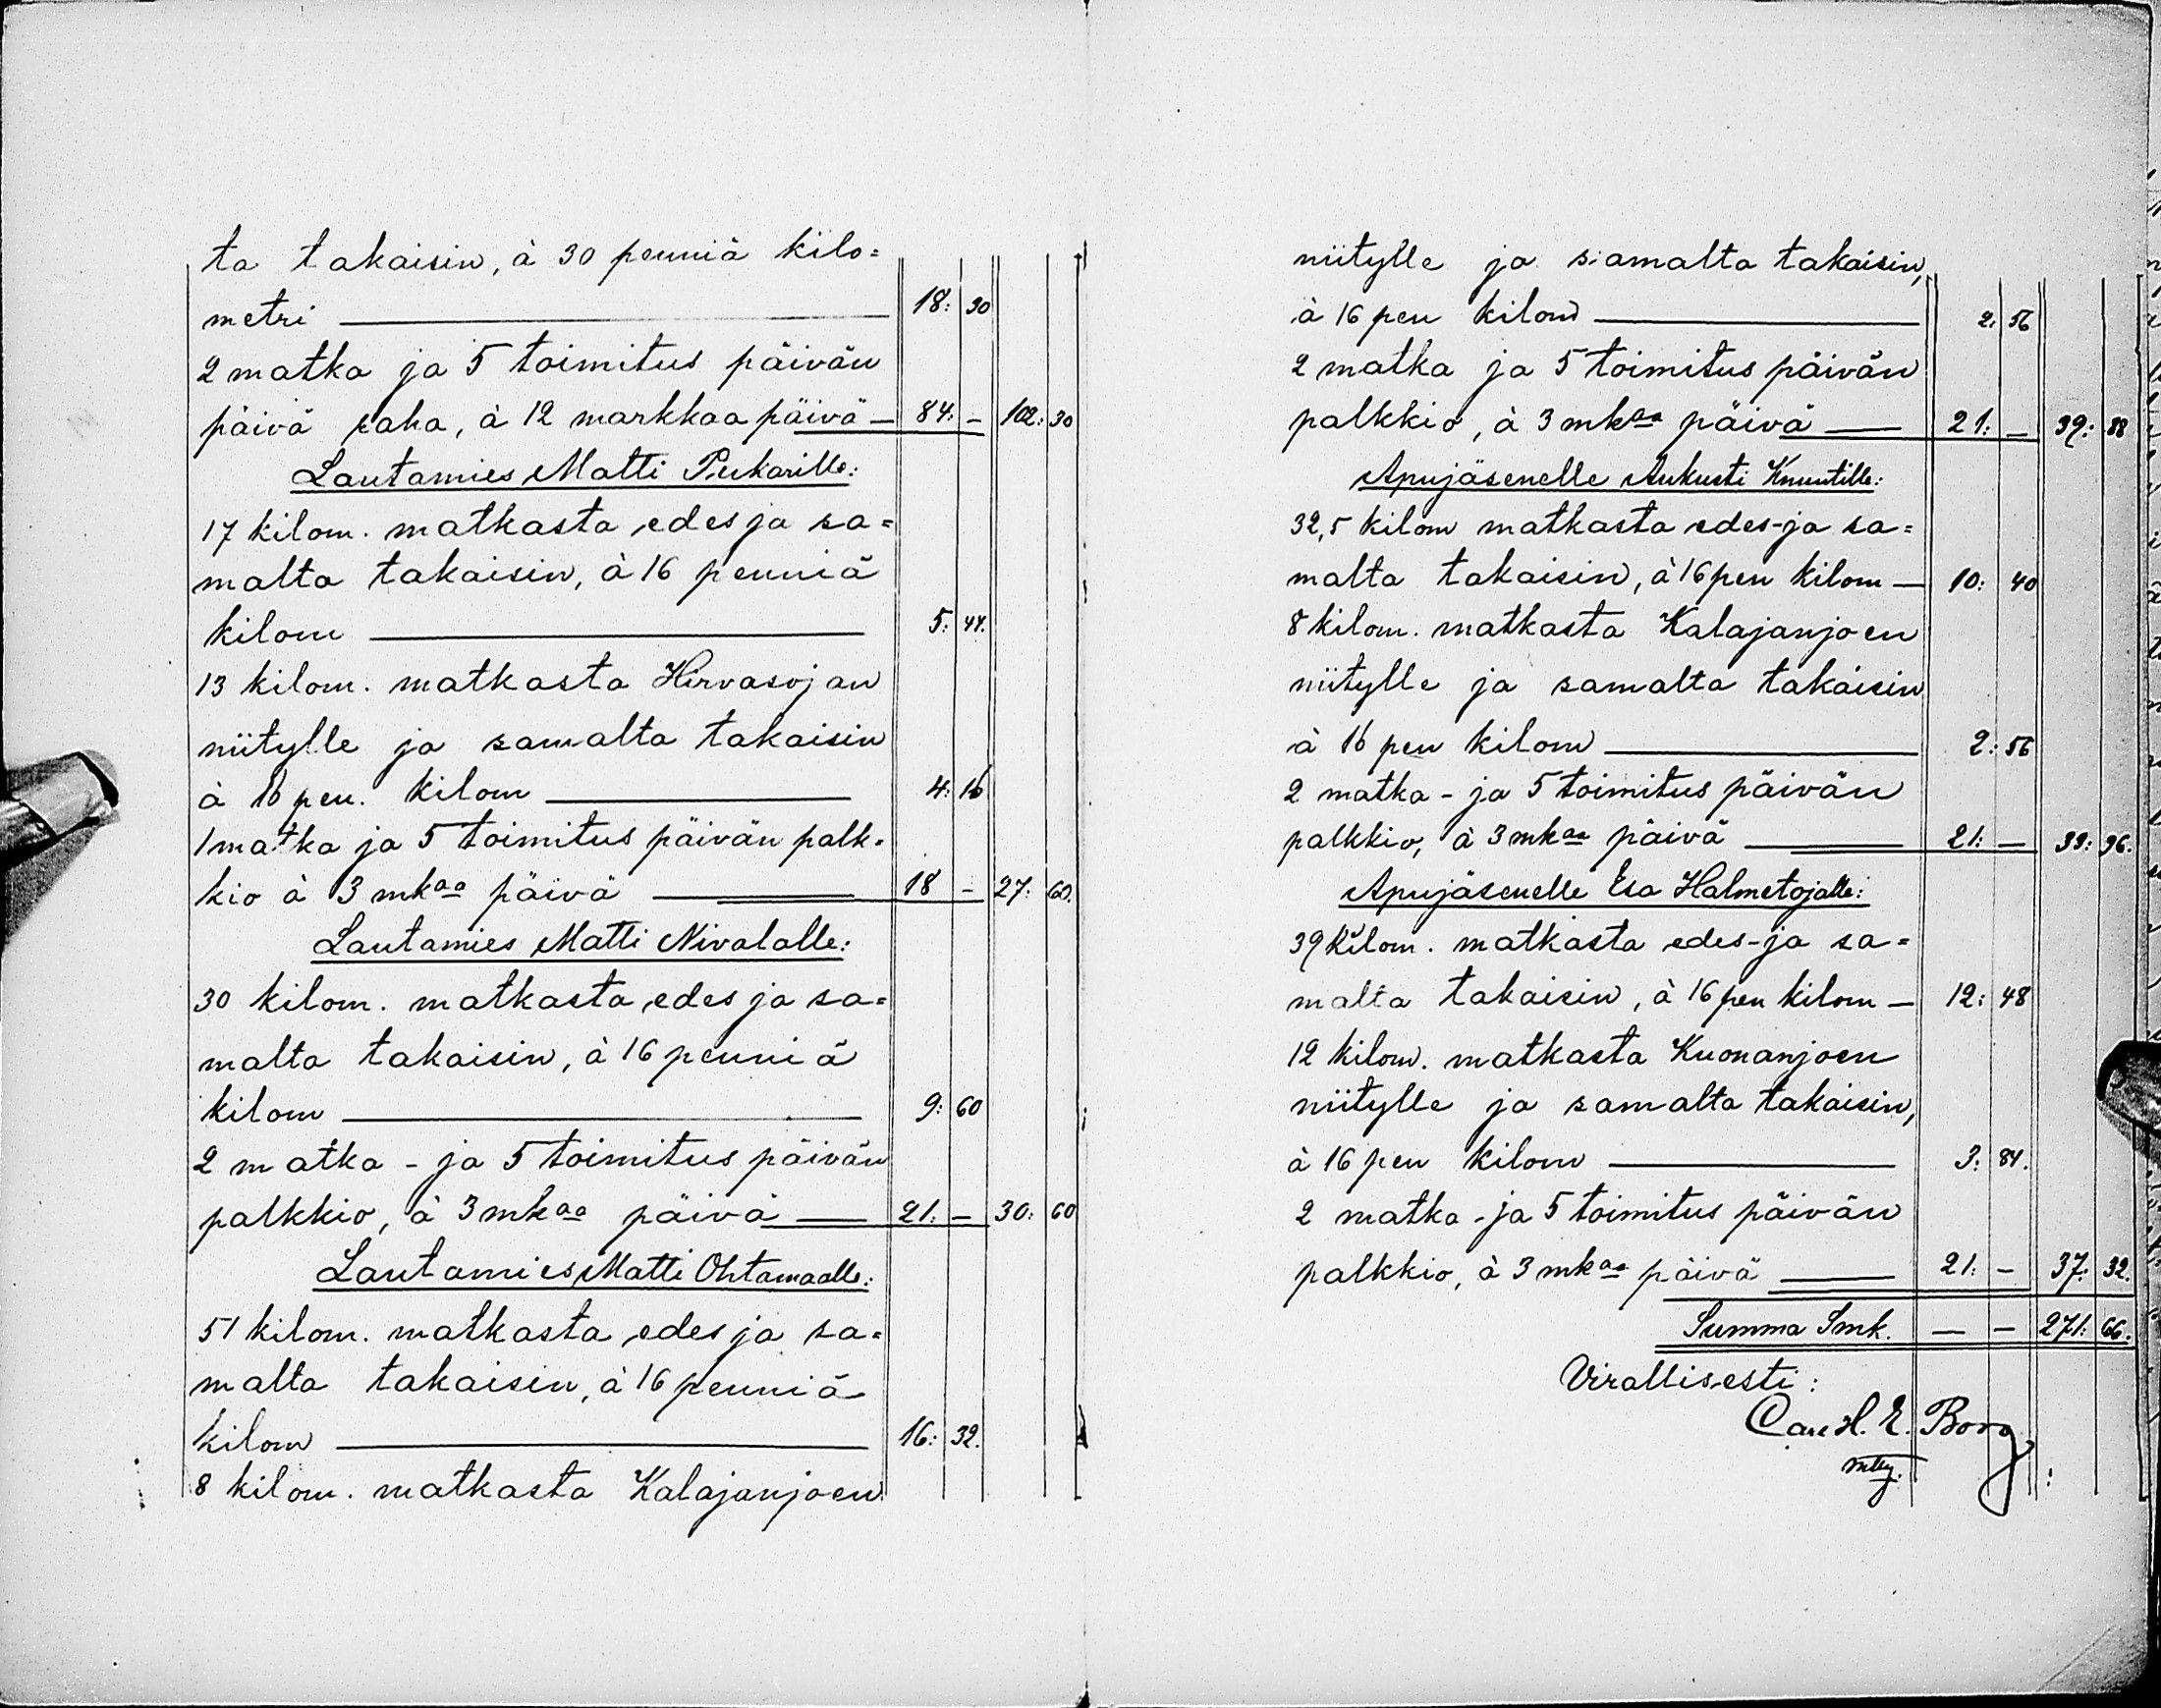 ta takaisin, à 30 penniä kilo=
metri — 18: 30
2 matka ja 5 toimitus päivän
päivä raha, à 12 markkaa päivä — 84: — 102: 30
Lautamies Matti Pukarille:
17 kilom. matkasta edes ja sa=
malta takaisin, à 16 penniä
kilom — 5: 44.
13 kilom. matkasta Hirvasojan
niitylle ja samalta takaisin
à 16 pen. kilom — 4: 16
1 matka ja 5 toimitus päivän palk=
kio à 3 mkaa päivä — 18 — 27: 60.
Lautamies Matti Nivalalle:
30 kilom. matkasta edes ja sa=
malta takaisin, à 16 penniä
kilom — 9: 60
2 matka - ja 5 toimitus päivän
palkkio, à 3 mkaa päivä — 21: — 30: 60
Lautamies Matti Ohtamaalle:
51 kilom. matkasta edes ja sa=
malta takaisin, à 16 penniä
kilom — 16: 32.
8 kilom. matkasta Kalajanjoen
niitylle ja samalta takaisin,
à 16 pen kilom — 2. 56
2 matka ja 5 toimitus päivän
palkkio, à 3 mkaa päivä — 21: — 39: 88
Apujäsenelle Aukusti Knuutille:
32,5 kilom matkasta edes-ja sa=
malta takaisin, à 16 pen kilom — 10: 40
8 kilom. matkasta Kalajanjoen
niitylle ja samalta takaisin
à 16 pen kilom — 2: 56
2 matka - ja 5 toimitus päivän
palkkio, à 3 mkaa päivä — 21: — 33: 96.
Apujäsenelle Esa Halmetojalle:
39 kilom. matkasta edes-ja sa=
malta takaisin, à 16 pen kilom — 12: 48
12 kilom. matkasta Kuonanjoen
niitylle ja samalta takaisin,
à 16 pen kilom — 3: 84.
2 matka - ja 5 toimitus päivän
palkkio, à 3 mkaa päivä — 21: — 37: 32.
Summa Smk. — — 271: 66.
Virallisesti:
Carl H. E. Borg